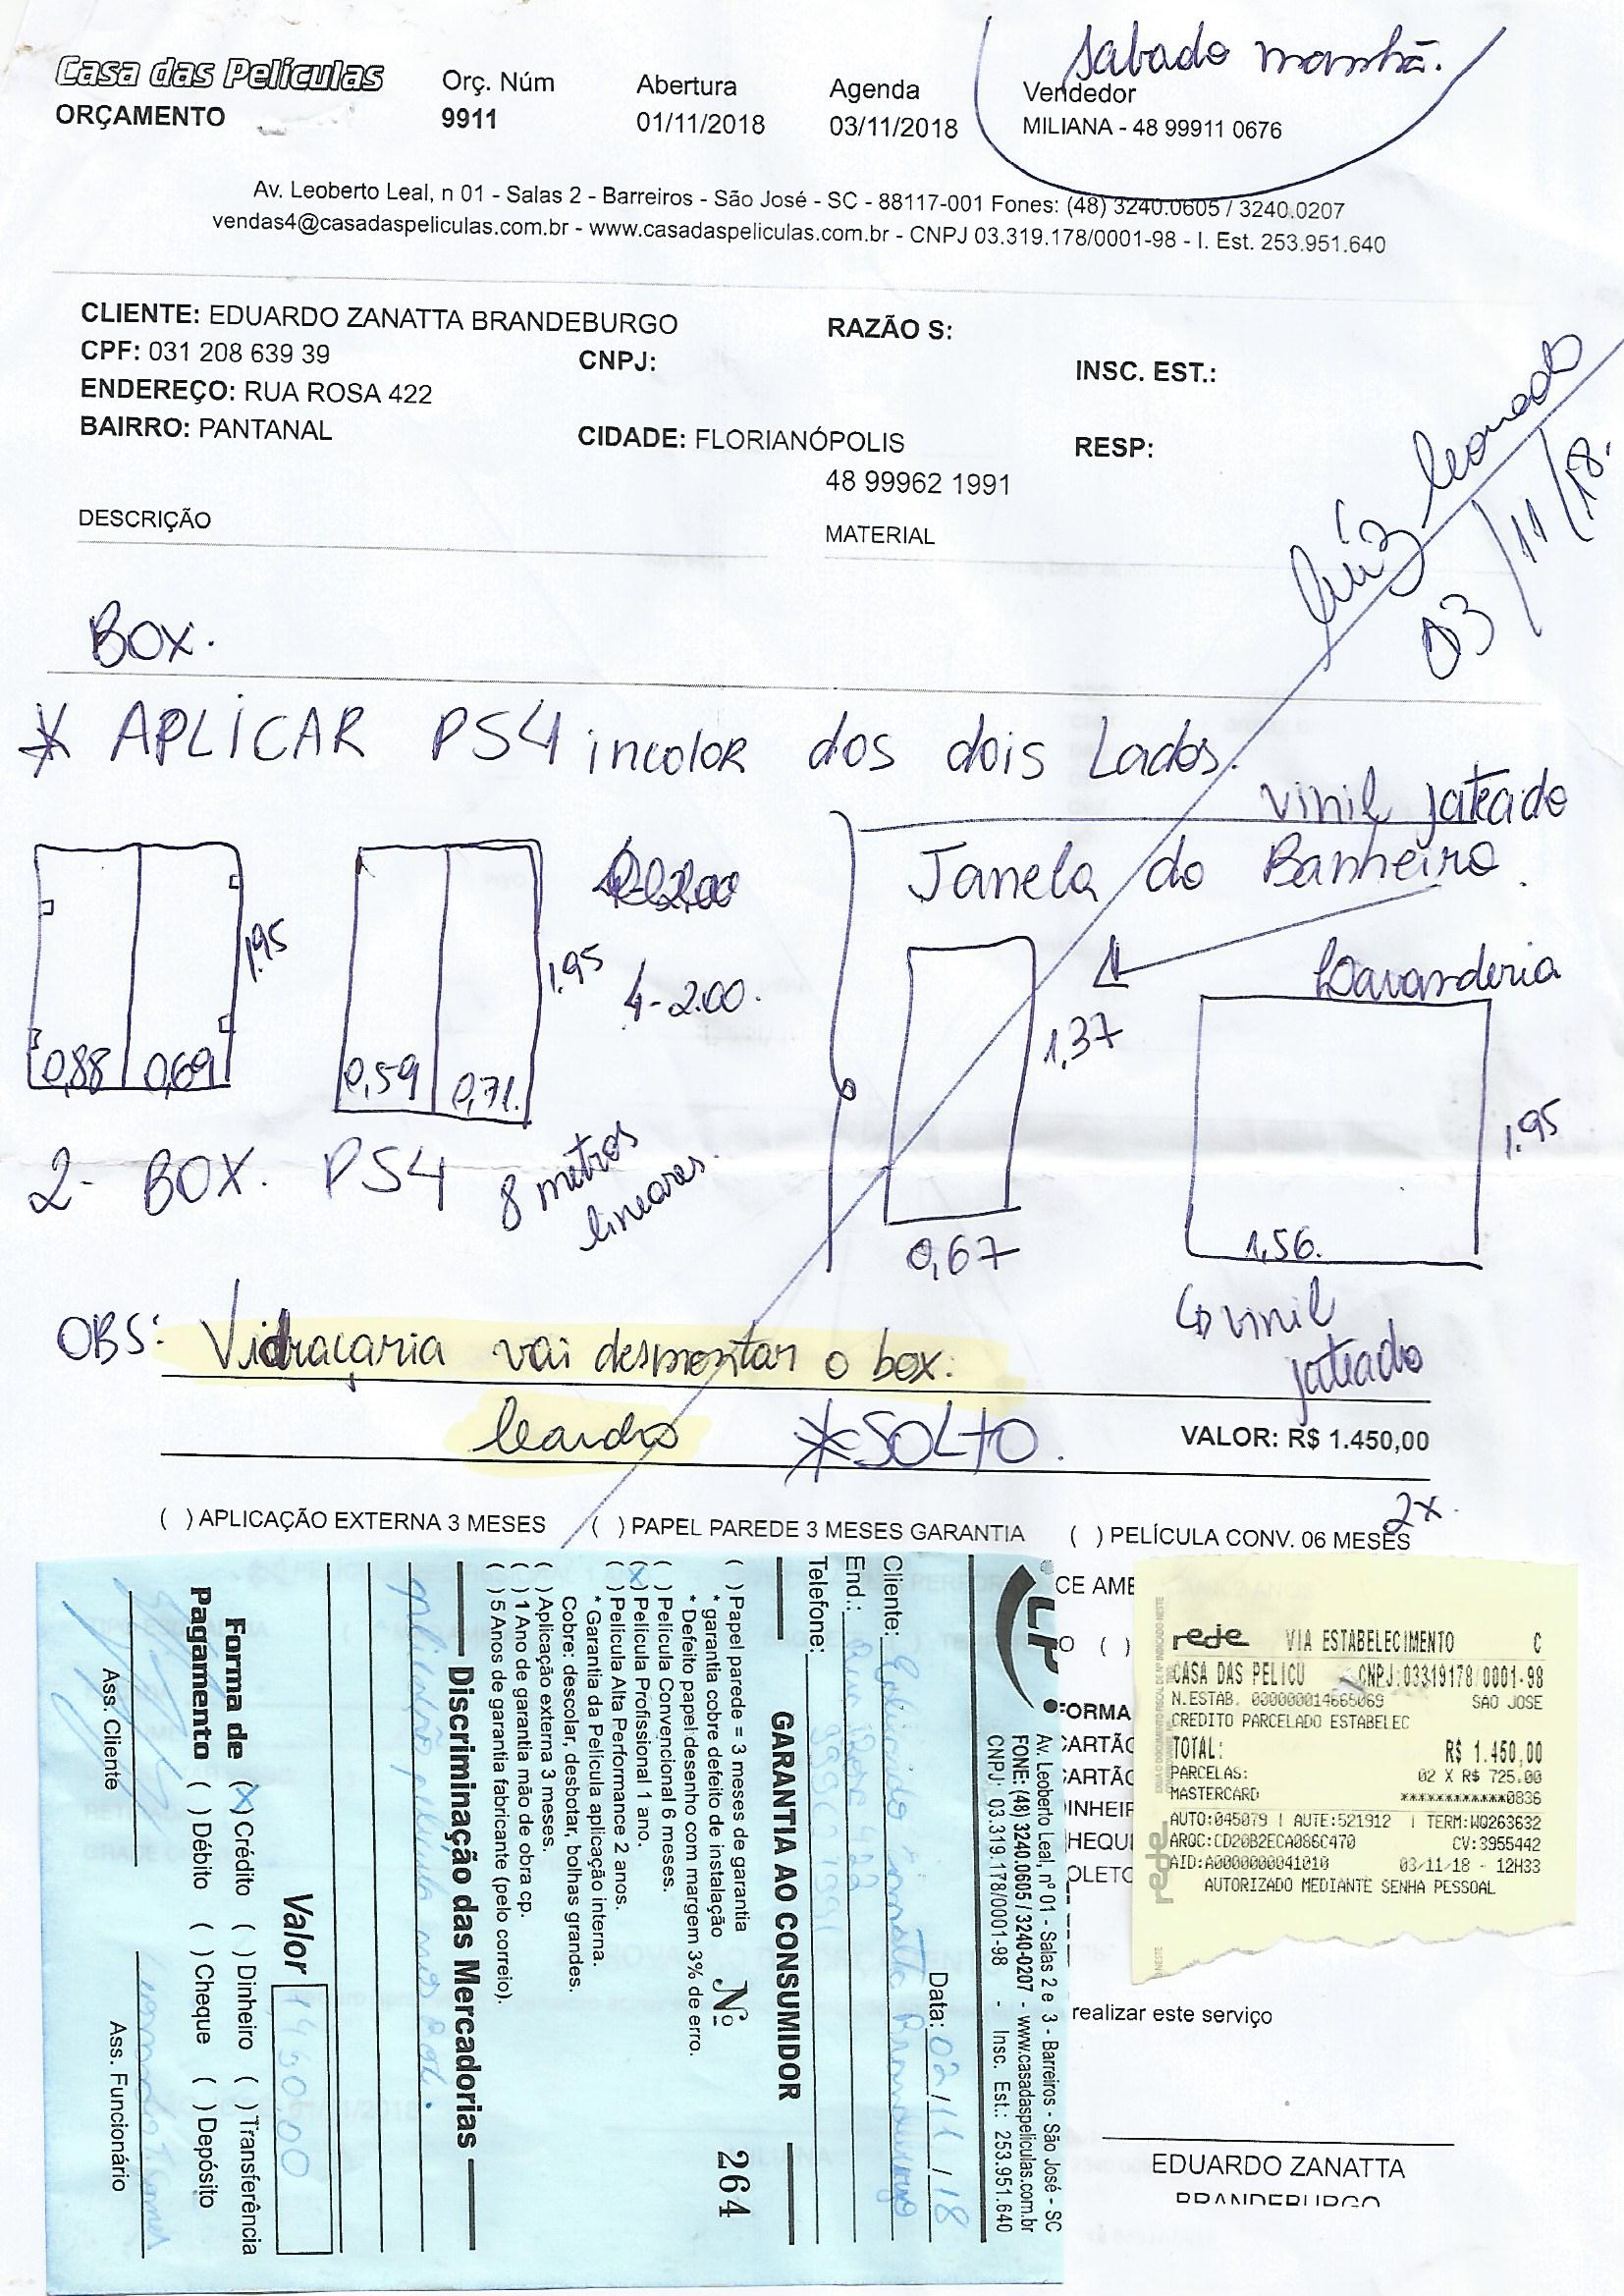 sabado manhã.
Casa das Películas
ORÇAMENTO
Orç. Núm
9911
Abertura
01/11/2018
Agenda
03/11/2018
Vendedor
MILIANA - 48 99911 0676
Av. Leoberto Leal, n 01 - Salas 2 - Barreiros - São José - SC - 88117-001 Fones: (48) 3240.0605 / 3240.0207
vendas4@casadaspeliculas.com.br - www.casadaspeliculas.com.br - CNPJ 03.319.178/0001-98 - I. Est. 253.951.640
CLIENTE: EDUARDO ZANATTA BRANDEBURGO
RAZÃO S:
CPF: 031 208 639 39
CNPJ:
INSC. EST.:
ENDEREÇO: RUA ROSA 422
BAIRRO: PANTANAL
CIDADE: FLORIANÓPOLIS
RESP:
48 99962 1991
DESCRIÇÃO
MATERIAL
Luiz Leonardo
03/11/18.
BOX.
* APLICAR PS4 incolor dos dois Lados.
vinil jateado
Janela do Banheiro.
Lavanderia
1.95
0,88
0,69
1.95
0,59
0,71.
4-2.00.
1,37
0,67
1.95
1,56.
2- BOX. PS4
8 metros
lineares.
vinil
jateado
OBS: Vidraçaria vai desmontar o box.
leandro
*SOLTO.
VALOR: R$ 1.450,00
2x.
( ) APLICAÇÃO EXTERNA 3 MESES
( ) PAPEL PAREDE 3 MESES GARANTIA
( ) PELÍCULA CONV. 06 MESES
CE AME
O ( )
FORMA
CARTÃO
CARTÃO
DINHEIR
HEQU
OLETO
realizar este serviço
EDUARDO ZANATTA
BRANDEBURGO
rede VIA ESTABELECIMENTO C
CASA DAS PELICU CNPJ:03319178/0001-98
N.ESTAB. 000000014665069 SAO JOSE
CREDITO PARCELADO ESTABELEC
TOTAL: R$ 1.450,00
PARCELAS: 02 X R$ 725.00
MASTERCARD ************0836
AUTO:045079 | AUTE:521912 | TERM:WO263632
ARQC:CD20B2ECA086C470 CV:3955442
AID:A0000000041010 03/11/18 - 12H33
AUTORIZADO MEDIANTE SENHA PESSOAL
rede
Av. Leoberto Leal, nº 01 - Salas 2 e 3 - Barreiros - São José - SC
FONE: (48) 3240.0605 / 3240-0207 - www.casadaspeliculas.com.br
CNPJ: 03.319.178/0001-98 - Insc. Est.: 253.951.640
Data: 02/11/18
Cliente: Eduardo Zanatta Brandeburgo
End.: Rua Rosa 422
Telefone: 99962 1991
GARANTIA AO CONSUMIDOR
Nº 264
( ) Papel parede = 3 meses de garantia
* garantia cobre defeito de instalação
* Defeito papel desenho com margem 3% de erro.
( ) Película Convencional 6 meses.
(X) Película Profissional 1 ano.
( ) Película Alta Performance 2 anos.
* Garantia da Película aplicação interna.
Cobre: descolar, desbotar, bolhas grandes.
( ) Aplicação externa 3 meses.
( ) 1 Ano de garantia mão de obra cp.
( ) 5 Anos de garantia fabricante (pelo correio).
Discriminação das Mercadorias
Aplicação película nos
Valor 1450 00
Forma de Pagamento
(X) Crédito ( ) Dinheiro ( ) Transferência
( ) Débito ( ) Cheque ( ) Depósito
Ass. Cliente
Ass. Funcionário